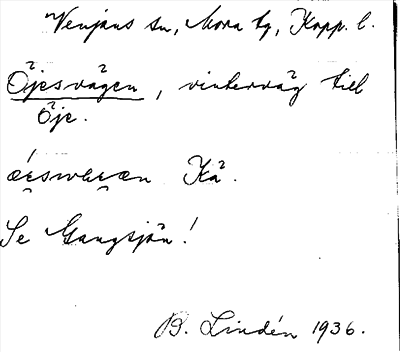 Venjans sn, Mora tg, Kopp. l.
Öjesvägen, vinterväg till
Öje.
Kå.
Se Gangsjön!
B. Lindén 1936.